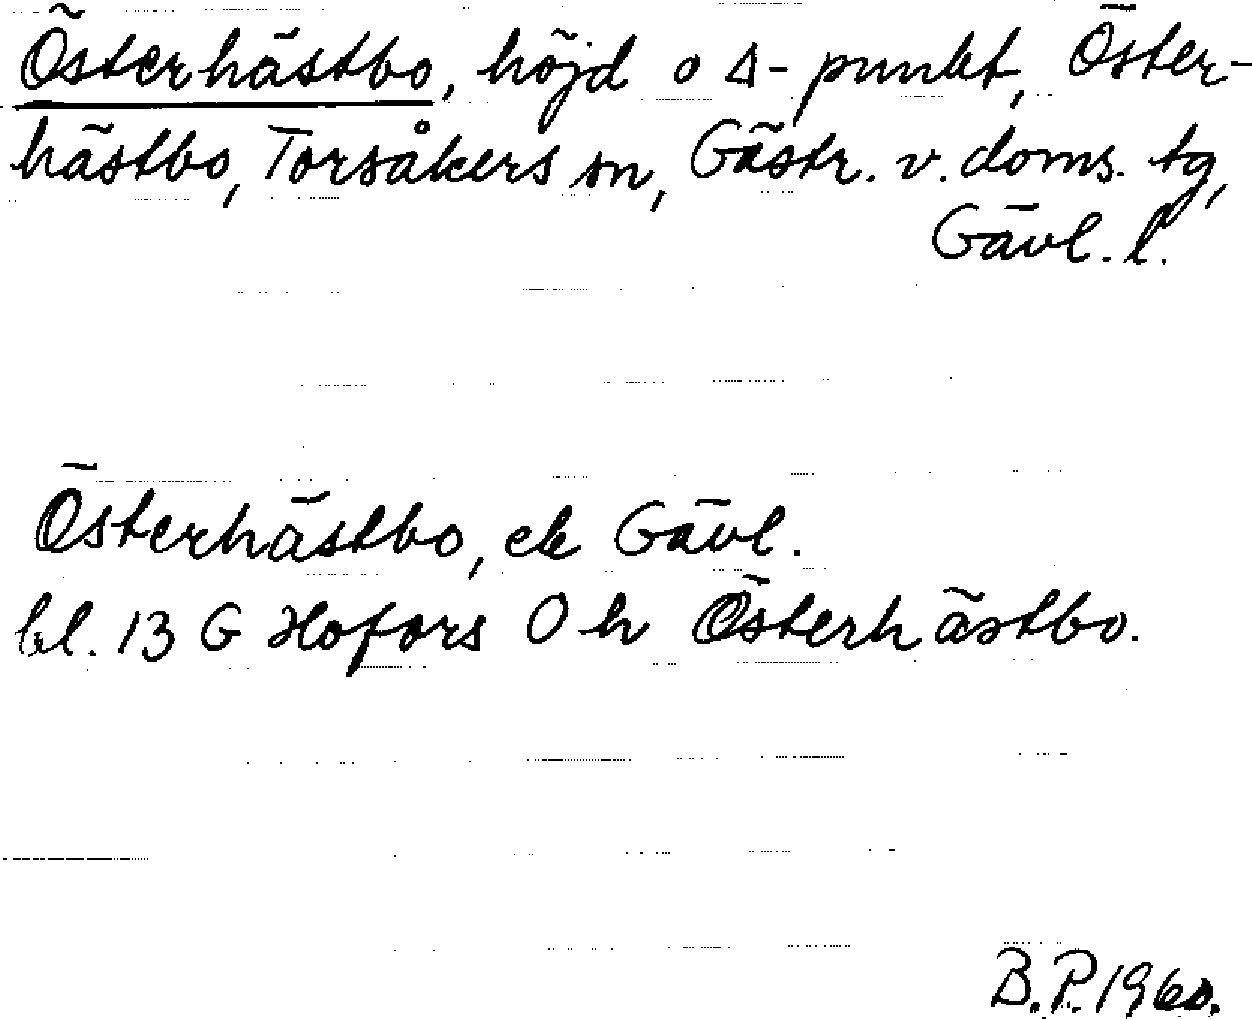 Österhästbo, höjd o Δ-punkt, Öster-
hästbo, Torsåkers sn, Gästr. v. doms. tg,
Gävl. l.
Österhästbo, ek Gävl.
bl. 13 G Hofors O h Österhästbo.
B.P. 1960.